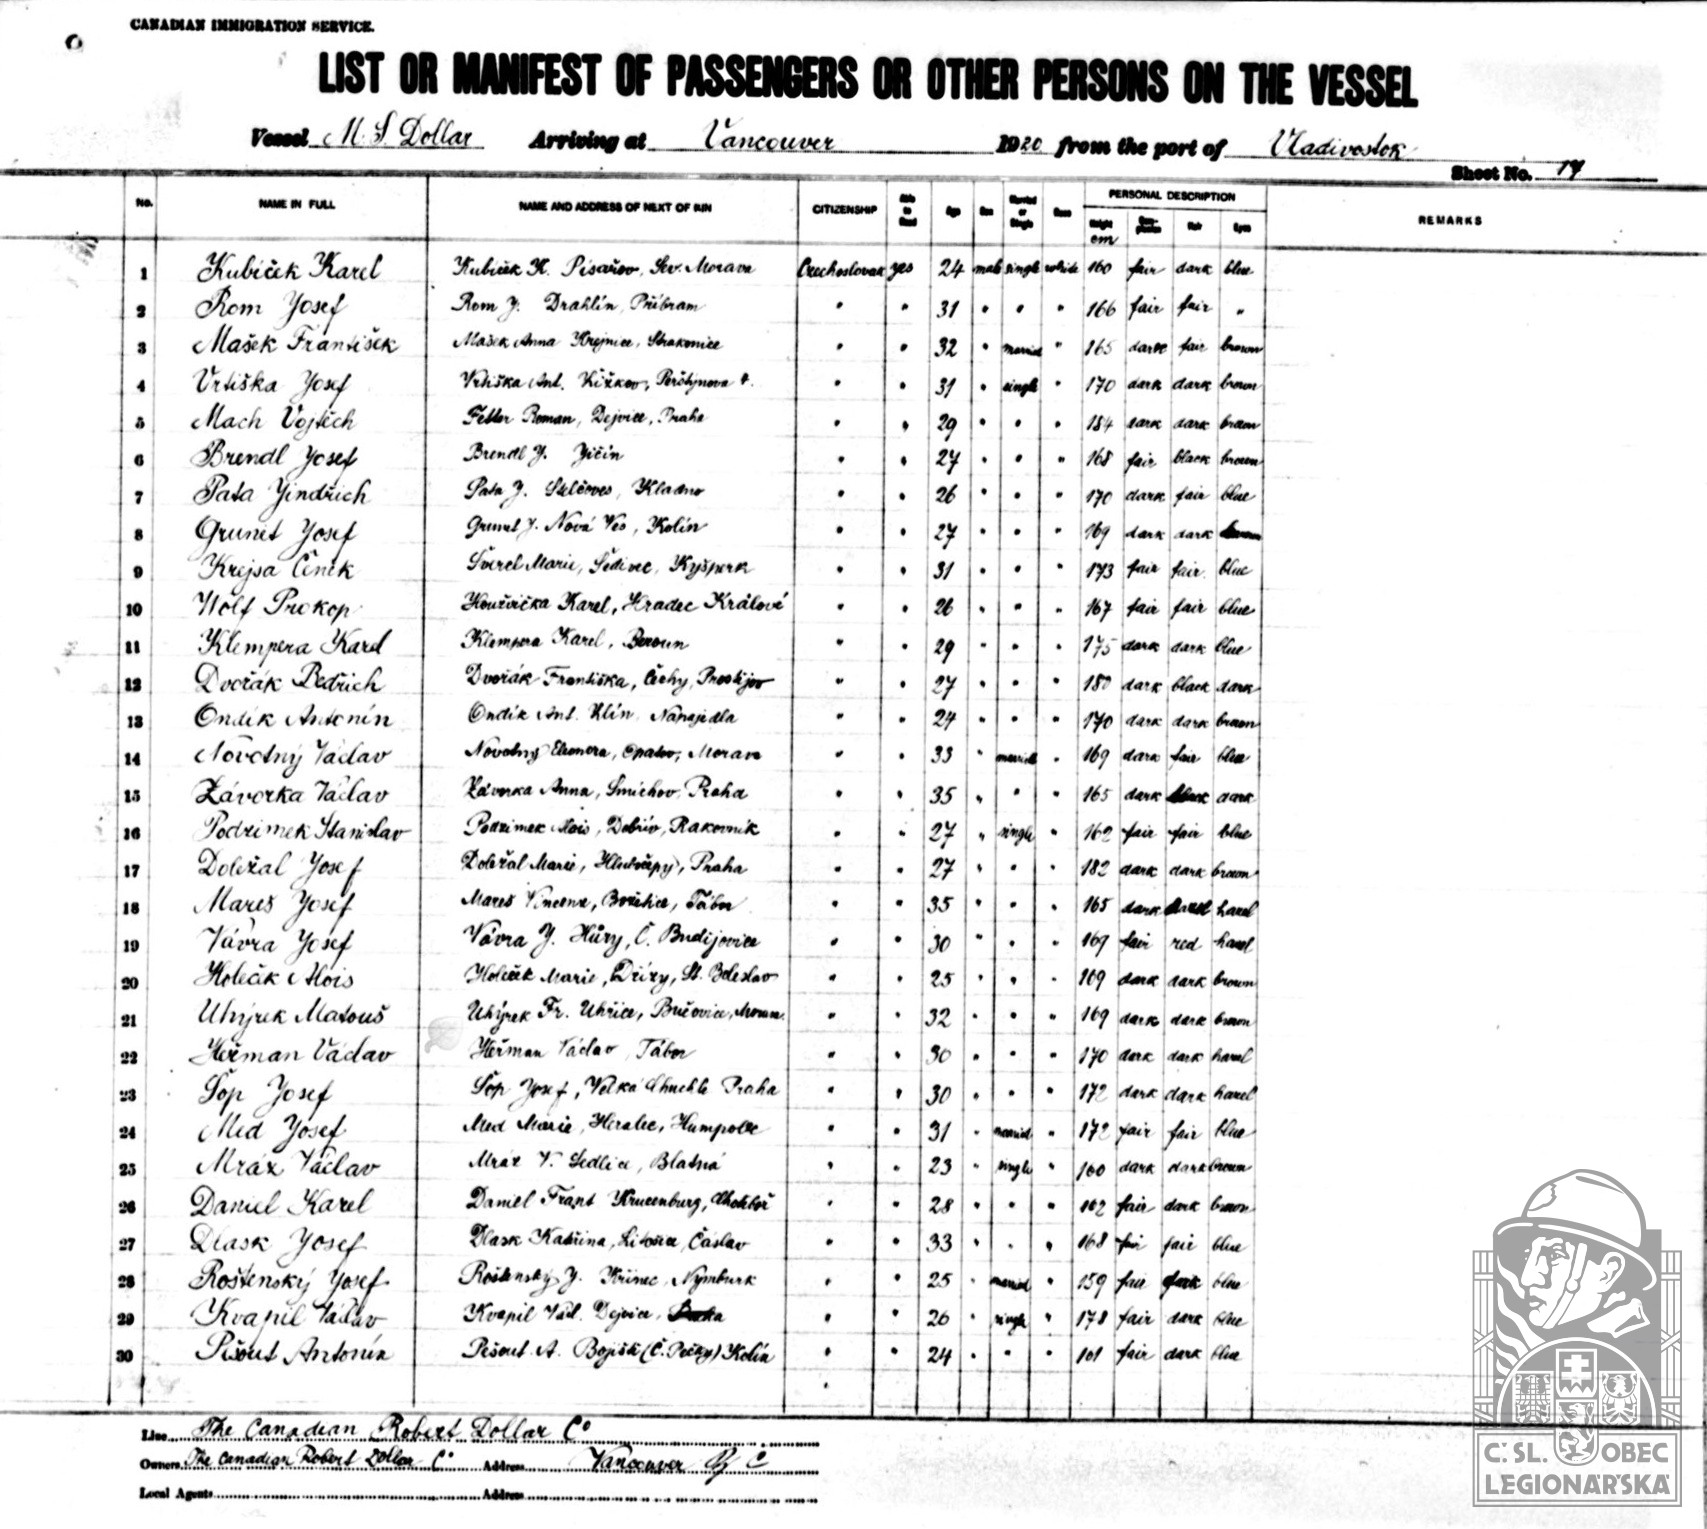 CANADIAN IMMIGRATION SERVICE.
LIST OR MANIFEST OF PASSENGERS OR OTHER PERSONS ON THE VESSEL
Vessel M. S. Dollar Arriving at Vancouver 1920 from the port of Vladivostok
Sheet No.
No. NAME IN FULL NAME AND ADDRESS OF NEXT OF KIN CITIZENSHIP Able to Read Age Sex Married or Single Race PERSONAL DESCRIPTION REMARKS
Height Complexion Hair Eyes
cm
1 Kubíček Karel Kubíček K. Písařov, Sev. Morava Czechoslovak yes 24 male single white 160 fair dark blue
2 Rom Josef Rom J. Drahlín, Příbram " " 31 " " " 166 fair fair "
3 Mašek František Mašek Anna Krejnice, Strakonice " " 32 " married " 165 dark fair brown
4 Vrtiška Josef Vrtiška Ant. Žižkov, " " 31 " single " 170 dark dark brown
5 Mach Vojtěch Roman, Dejvice, Praha " " 29 " " " 184 dark dark brown
6 Brendl Josef Brendl J. Jičín " " 27 " " " 168 fair black brown
7 Pata Jindřich Pata J. Kladno " " 26 " " " 170 dark fair blue
8 Grunet Josef Grunet J. Nová Ves, Kolín " " 27 " " " 169 dark dark
9 Krejsa Čeněk Marie, Šedivec, Kyšperk " " 31 " " " 173 fair fair blue
10 Wolf Prokop Karel, Hradec Králové " " 26 " " " 167 fair fair blue
11 Klempera Karel Klempera Karel, Beroun " " 29 " " " 175 dark dark blue
12 Dvořák Bedřich Dvořák Františka, Čechy, Prostějov " " 27 " " " 180 dark black dark
13 Ondík Antonín Ondík Ant. Zlín, Napajedla " " 24 " " " 170 dark dark brown
14 Novotný Václav Novotný Eleonora, Opatov, Morava " " 33 " married " 169 dark fair blue
15 Závorka Václav Závorka Anna, Smíchov, Praha " " 35 " " " 165 dark black dark
16 Podzimek Stanislav Podzimek Alois, Dobřív, Rakovník " " 27 " single " 162 fair fair blue
17 Doležal Josef Doležal Marie, Hlubočepy, Praha " " 27 " " " 182 dark dark brown
18 Mareš Josef Mareš Vincenc, Božetice, Tábor " " 35 " " " 165 dark hazel
19 Vávra Josef Vávra J. Hůry, Č. Budějovice " " 30 " " " 169 fair red hazel
20 Holeček Alois Holeček Marie, Dřízy, St. Boleslav " " 25 " " " 169 dark dark brown
21 Uhýrek Matouš Uhýrek Fr. Uhřice, Bučovice, Morava " " 32 " " " 169 dark dark brown
22 Heřman Václav Heřman Václav, Tábor " " 30 " " " 170 dark dark hazel
23 Šop Josef Šop Josef, Velká Chuchle Praha " " 30 " " " 172 dark dark hazel
24 Med Josef Med Marie, Heralec, Humpolec " " 31 " married " 172 fair fair blue
25 Mráz Václav Mráz V. Sedlice, Blatná " " 23 " single " 160 dark dark brown
26 Daniel Karel Daniel Frant Krucenburg, Chotěboř " " 28 " " " 162 fair dark brown
27 Dlask Josef Dlask Kateřina, Litošice, Čáslav " " 33 " " " 168 fair fair blue
28 Roštenský Josef Roštenský J. Křinec, Nymburk " " 25 " married " 159 fair dark blue
29 Kvapil Václav Kvapil Václ. Dejvice, Praha " " 26 " single " 178 fair dark blue
30 Pišout Antonín Pišout A. Bojiště (Č. Pečky) Kolín " " 24 " " " 161 fair dark blue
Line The Canadian Robert Dollar Co
Owners The Canadian Robert Dollar Co Address Vancouver B C
Local Agents Address
Č. SL. OBEC
LEGIONÁŘSKÁ